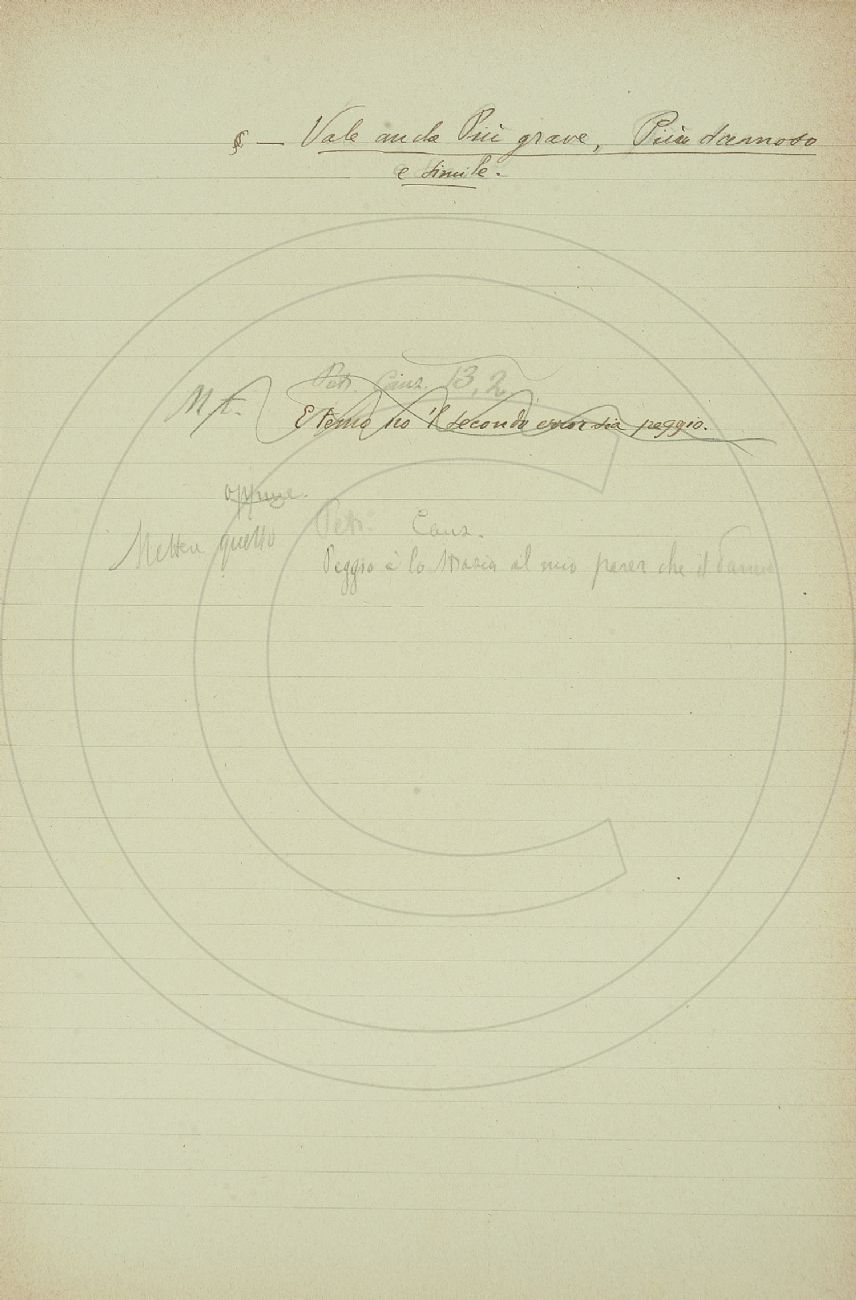 § — Vale anche Più grave, Più dannoso
e simile.
Petr. Canz. 13, 2
E temo no 'l secondo error sia peggio.
oppure.
Metter questo Petr. Canz.
Peggio è lo strazio al mio parer che il danno